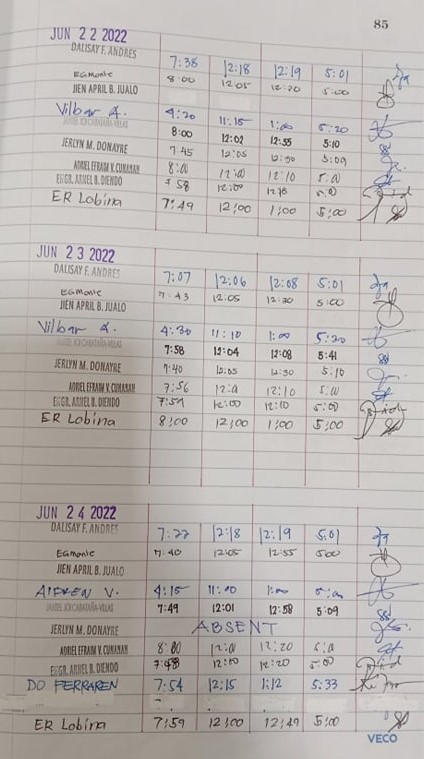 85
JUN 22 2022
DALISAY F. ANDRES 7:38 12:18 12:19 5:01
EGMonte 8:00 12:05 12:20 5:00
JIEN APRIL B. JUALO
Vilbar A. 4:20 11:15 1:00 5:20
8:00 12:02 12:55 5:10
JERLYN M. DONAYRE 7:45 12:05 12:30 5:09
ADRIEL EFRAIM V. CUNANAN 8:00 12:10 5:00
ENGR. ARNEL B. DIENDO 7:58 12:00 5:00
ER Lobina 7:49 12:00 1:00 5:00
JUN 23 2022
DALISAY F. ANDRES 7:07 12:06 12:08 5:01
EGMonte 7:43 12:05 12:30 5:00
JIEN APRIL B. JUALO
Vilbar A. 4:30 11:10 1:00 5:20
7:58 12:04 12:08 5:41
JERLYN M. DONAYRE 7:40 12:05 12:30 5:10
ADRIEL EFRAIM V. CUNANAN 7:56 12:10
ENGR. ARNEL B. DIENDO 12:00 12:10 5:00
ER Lobina 8:00 12:00 1:00 5:00
JUN 24 2022
DALISAY F. ANDRES 7:22 12:18 12:19 5:01
EGMonte 7:40 12:05 12:55 5:00
JIEN APRIL B. JUALO
V. 4:15 11:00 1:00
7:49 12:01 12:58 5:09
JERLYN M. DONAYRE ABSENT
ADRIEL EFRAIM V. CUNANAN 8:00 12:20
ENGR. ARNEL B. DIENDO 12:00 12:20 5:00
DO FERRAREN 7:54 12:15 1:12 5:33
ER Lobina 7:59 12:00 12:49 5:00
VECO